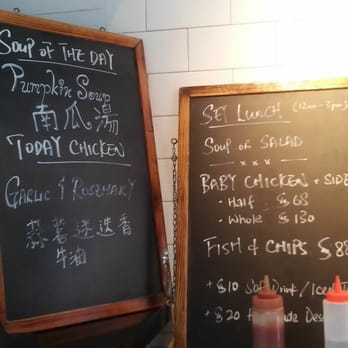 SOUP OF THE DAY
Pumpkin Soup
南瓜湯
TODAY CHICKEN
GARLIC & ROSEMARY
蒜蓉迷迭香
牛油
SET LUNCH (12nn-3pm)
SOUP OR SALAD
BABY CHICKEN + SIDE
- Half $68
- Whole $130
FISH & CHIPS $88
+ $10 Soft Drink / Iced
+ $20